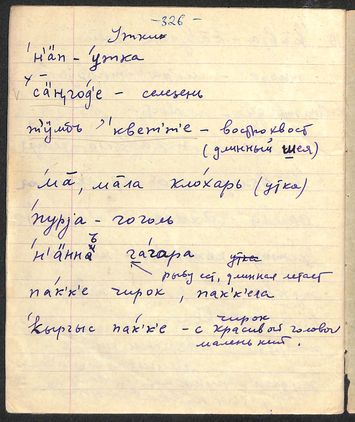 -326-
Утки
н'ӓп - утка
сӓӊго̄д'е - селезень
кветт'е - вострохвост
(длинный шея)
ма̄, мала клохарь (утка)
пурjа - гоголь
н'ӓнна гагара утка
рыбу ест, длинная летает
пак'к'е чирок, пак'к'ела
кыргыс пак'к'е - с красивой головой
чирок
маленький.